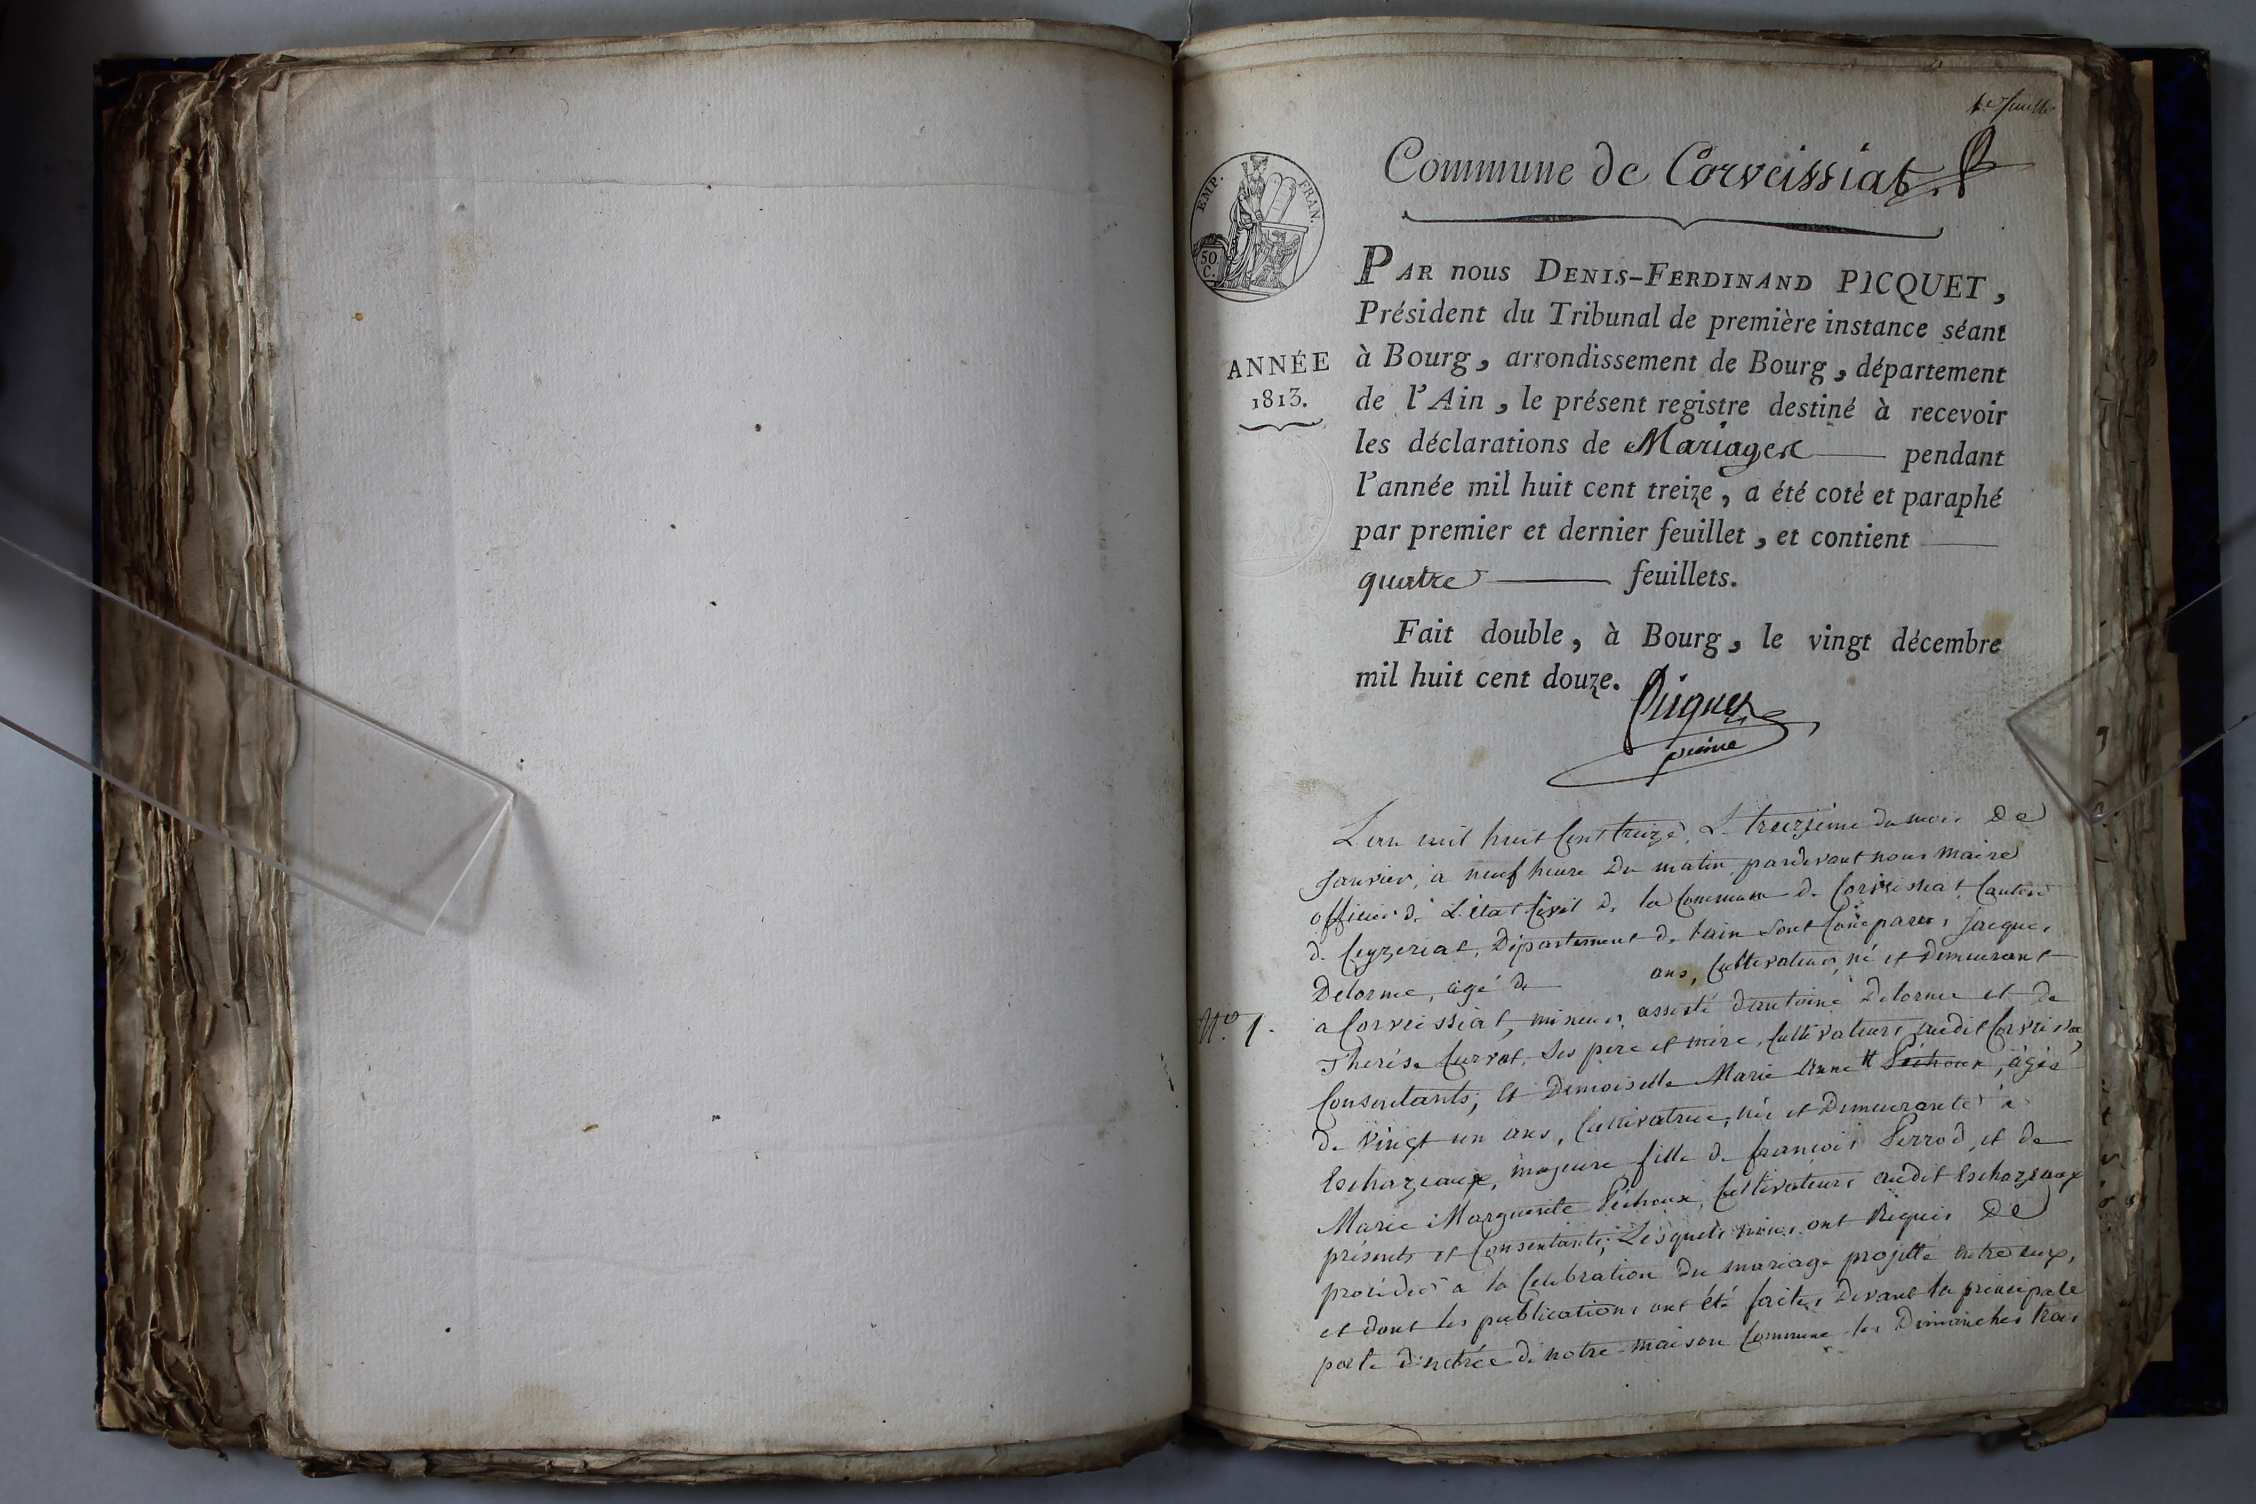 1.er feuillet
Commune de Corveissiat.
EMP. FRAN.
50 C.
PAR nous DENIS-FERDINAND PICQUET,
Président du Tribunal de première instance séant
ANNÉE
1813.
à Bourg, arrondissement de Bourg, département
de l'Ain, le présent registre destiné à recevoir
les déclarations de Mariages pendant
l'année mil huit cent treize, a été coté et paraphé
par premier et dernier feuillet, et contient
quatre feuillets.
Fait double, à Bourg, le vingt décembre
mil huit cent douze.
Picquet
L'an mil huit Cent treize, Le treizieme du mois De
Janvier, a neuf heure Du matin, pardevant nous Maire
officier de L'état Civil De la Commune de Corveissiat Canton
de Ceyzeriat, Département de Lain Sont Comparus, Jacque
Delorme, agé de ans, Cultivateur, né et Demeurant
N.o 1.
a Corveissiat, mineur, assisté d'antoine Delorme et De
Therése Curvat, Ses pere et mère, Cultivateurs audit Corveissiat,
Consentants, Et Demoiselle Marie Anne # Péchoux, agée
De Vingt un ans, Cultivatrice, née et Demeurante à
Eschazeaux, majeure fille De françois Perrod, et De
Marie Marguerite Péchoux, Cultivateurs audit Eschazeaux
présents et Consentants; Lesquels nous ont Requis De
procéder a la Célébration Du mariage projetté entre eux,
et dont les publications ont été faites Devant la principale
porte d'entrée de notre maison Commune les Dimanches trois